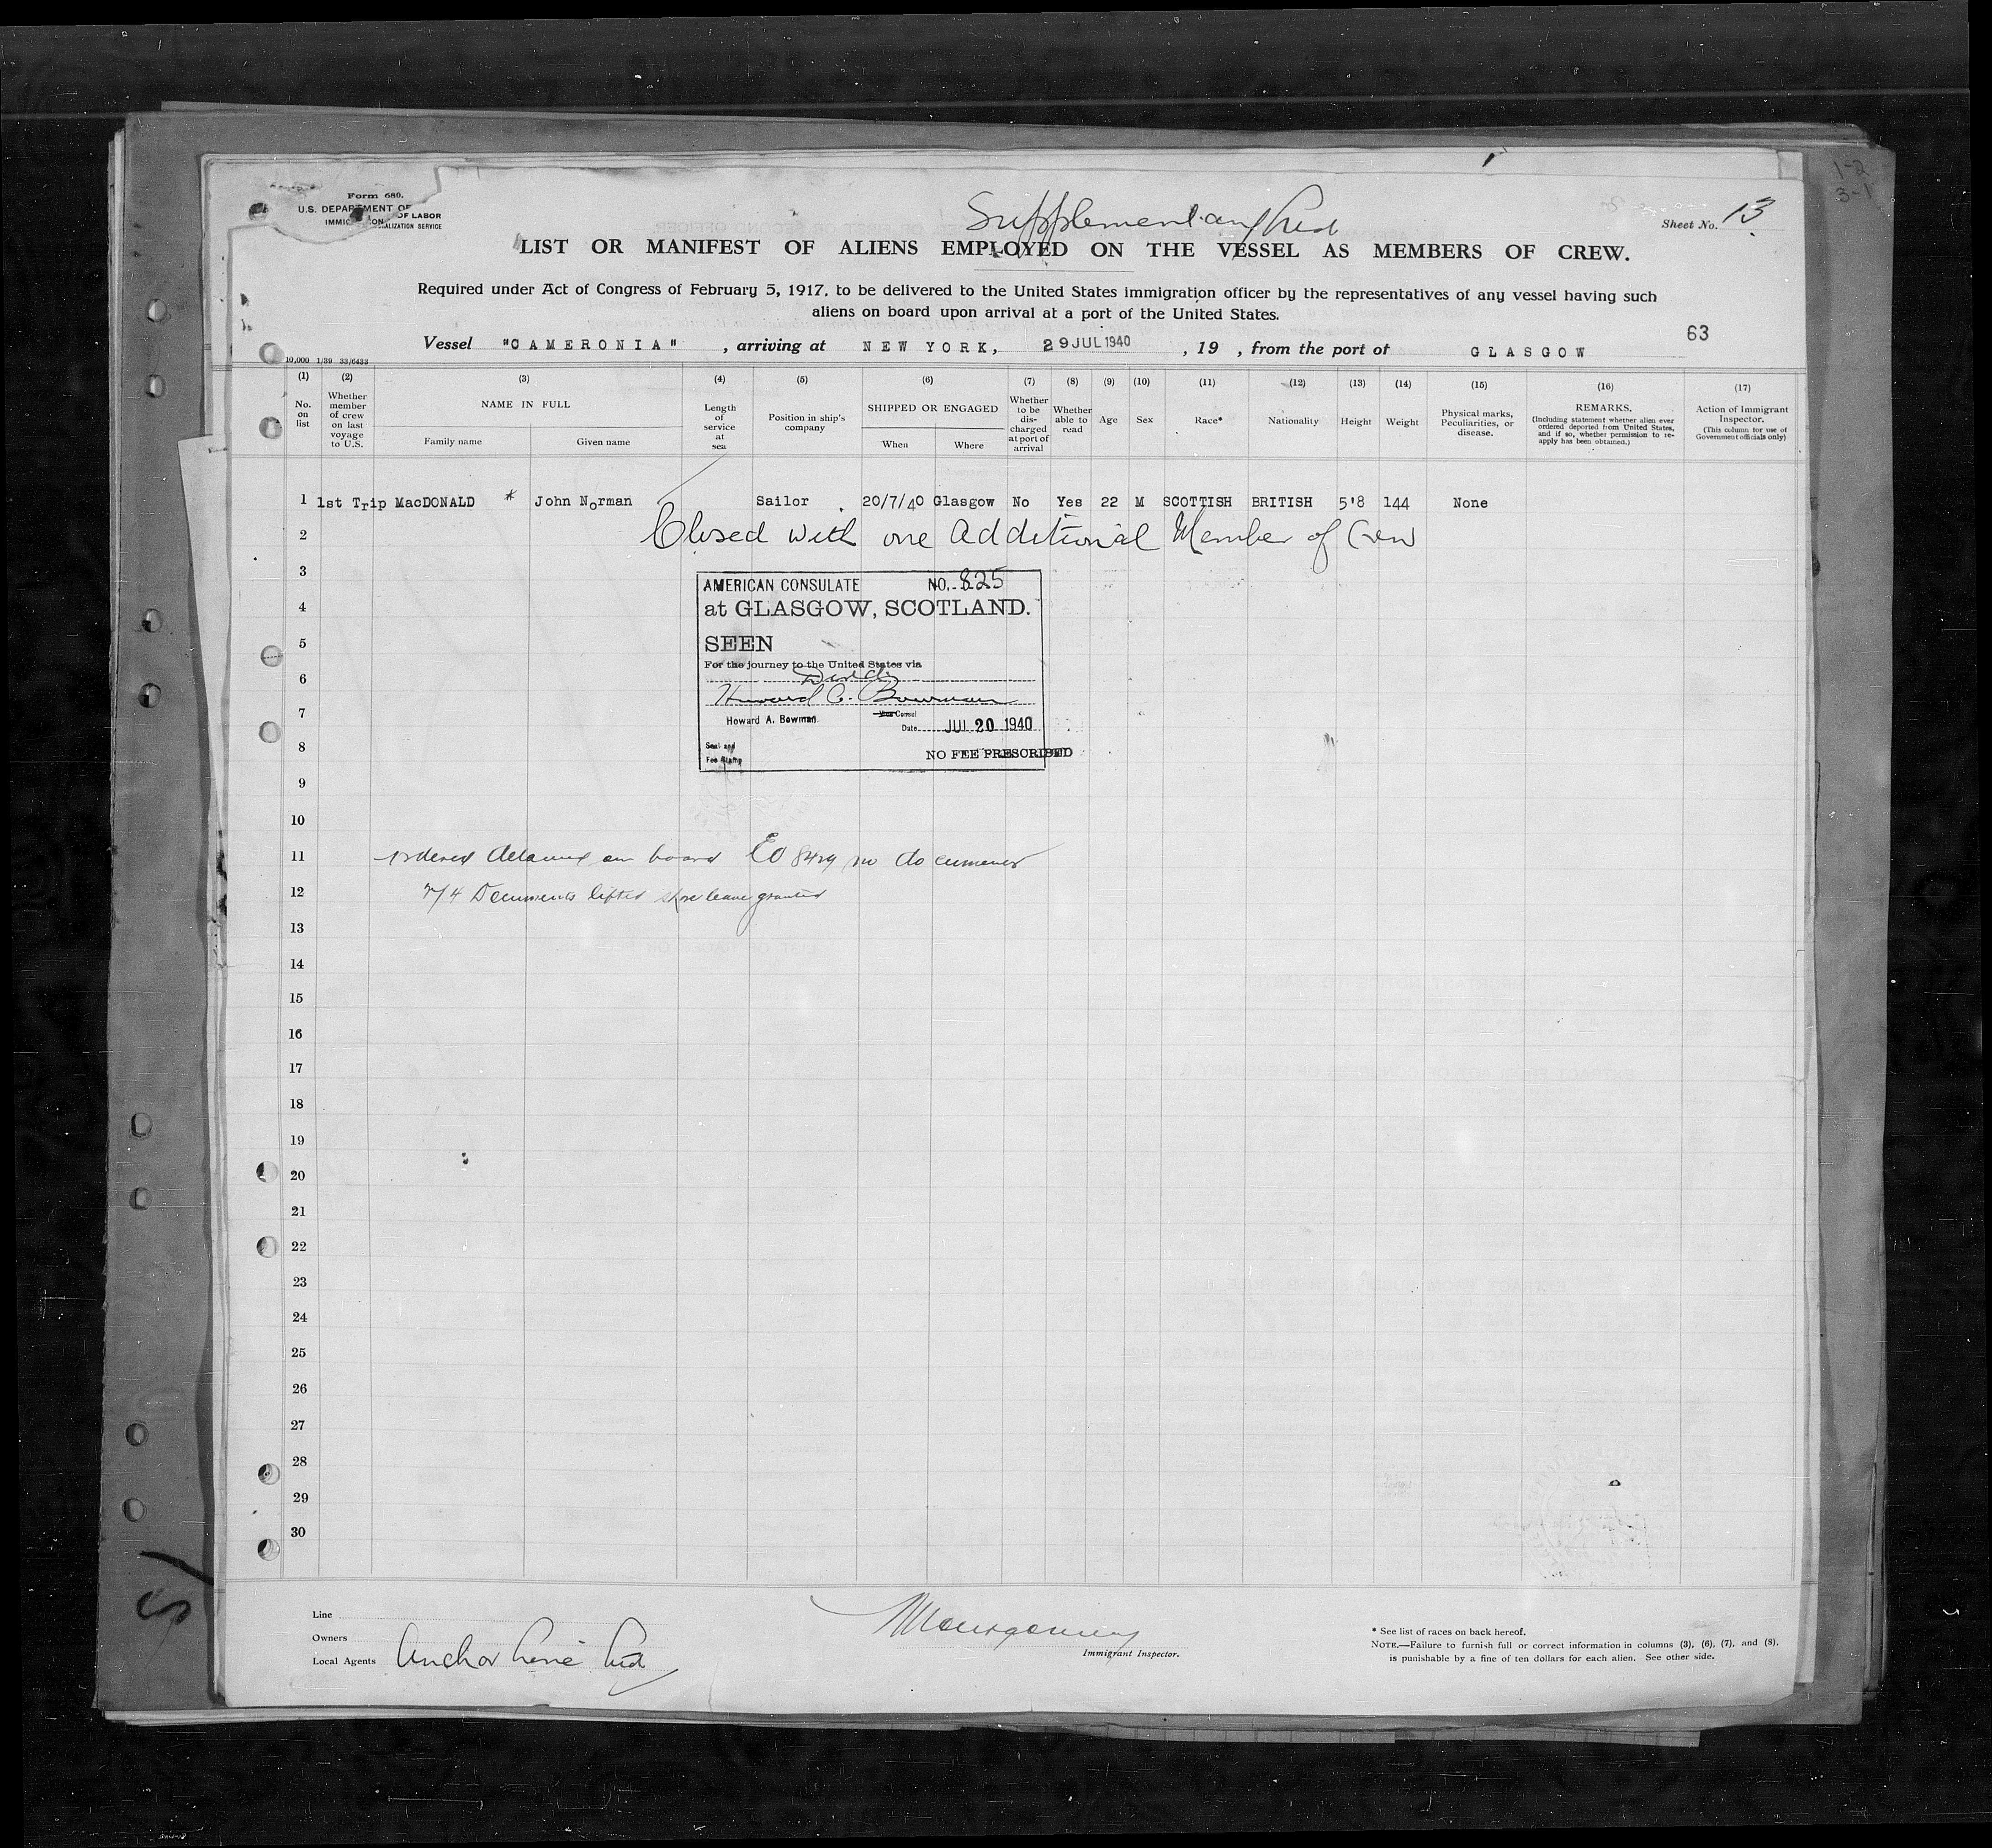 1-2
3-1
Form 680.
U.S. DEPARTMENT OF LABOR
IMMIGRATION NATURALIZATION SERVICE
Supplementary List
Sheet No. 13
LIST OR MANIFEST OF ALIENS EMPLOYED ON THE VESSEL AS MEMBERS OF CREW.
Required under Act of Congress of February 5, 1917, to be delivered to the United States immigration officer by the representatives of any vessel having such
aliens on board upon arrival at a port of the United States.
63
Vessel "CAMERONIA", arriving at NEW YORK, 29 JUL 1940, 19 , from the port of GLASGOW
10,000 1/39 33/6433
(1) (2) (3) (4) (5) (6) (7) (8) (9) (10) (11) (12) (13) (14) (15) (16) (17)
No. on list
Whether member of crew on last voyage to U.S.
NAME IN FULL
Family name
Given name
Length of service at sea
Position in ship's company
SHIPPED OR ENGAGED
When
Where
Whether to be discharged at port of arrival
Whether able to read
Age
Sex
Race*
Nationality
Height
Weight
Physical marks, Peculiarities, or disease.
REMARKS.
(Including statement whether alien ever ordered deported from United States, and if so, whether permission to re-apply has been obtained.)
Action of Immigrant Inspector.
(This column for use of Government officials only)
1 1st Trip MacDONALD * John Norman Sailor 20/7/40 Glasgow No Yes 22 M SCOTTISH BRITISH 5'8 144 None
2 Closed with one Additional Member of Crew
3
AMERICAN CONSULATE NO. 825
4
at GLASGOW, SCOTLAND.
5
SEEN
For the journey to the United States via
6
Direct
Howard A. Bowman
7
Howard A. Bowman Vice Consul
Date JUL 20 1940
8
Seal and
Fee Stamp
NO FEE PRESCRIBED
9
10
11 ordered detained on board EO 8429 no documents
12 Documents lifted shore leave granted
13
14
15
16
17
18
19
20
21
22
23
24
25
26
27
28
29
30
Line
Owners
Local Agents Anchor Line Ltd
Montgomery
Immigrant Inspector.
* See list of races on back hereof.
NOTE.—Failure to furnish full or correct information in columns (3), (6), (7), and (8).
is punishable by a fine of ten dollars for each alien. See other side.